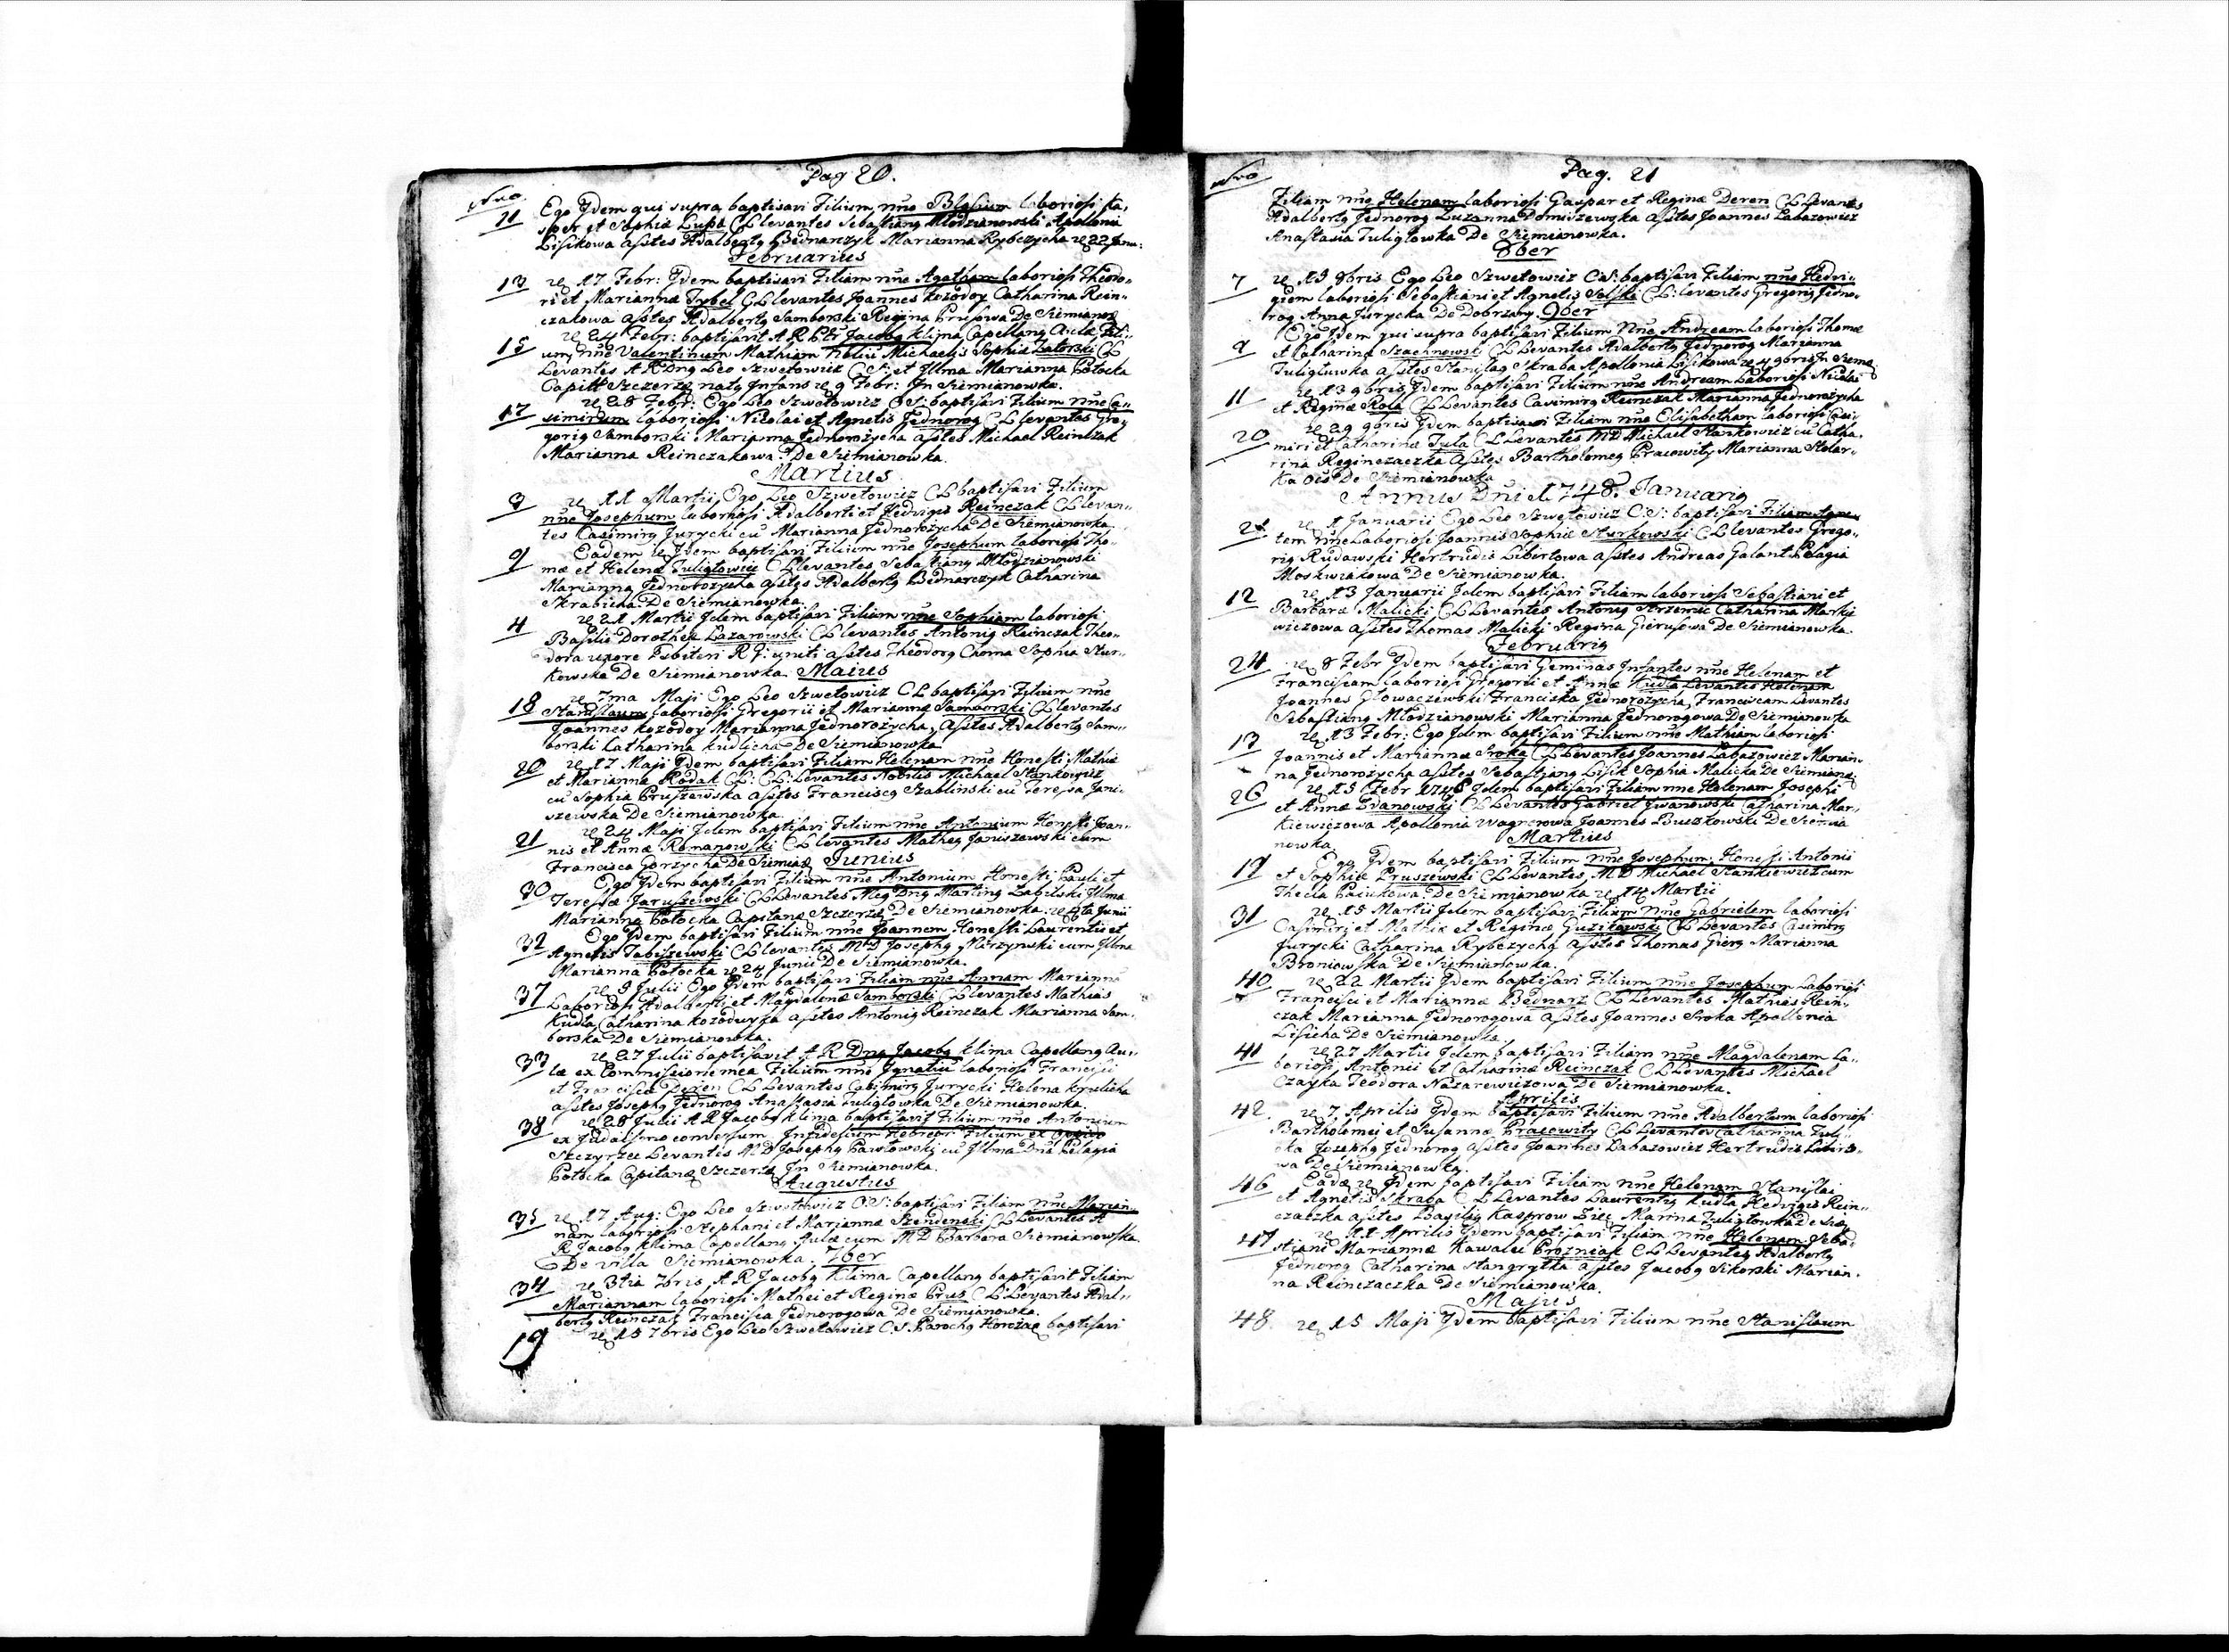 Pag 20.
Nro
11 Ego Ydem qui supra baptisavi Filium nne Blasium laboriosi Ka,
sper et Sophia Lupa CLlevantes Sebastiang Młodzianowski Apollonia
Lisikowa asstes Adalbertg Bednarzyk Marianna Rybczycha 22 Janu:
Februarius
13 17 Febr: Ydem baptisavi Filiam nne Agatham laboriosi Theodo,,
ri et Marianna Tybel CLlevantes Joannes Kozodoy Catharina Rein,,
czakowa asstes Adalbertg Samborski Regina Prusowa De Siemianow
15 24 Febr: baptisavit A R Jacobg Klima Capellang Aulæ Fili,,
um nne Valentinum Mathiam Michaelis Sophia Zatorski CL
Levantes A R Dng Leo Szwetowicz C S: et Illma Marianna Potocka
Capitt Szczerze natg Infans 9 Febr: In Siemianowka.
17 28 Febr: Ego Leo Szwetowicz C S: baptisavi Filium nne Ca,,
simirum laboriosi Nicolai et Agnetis Jednorog CLlevantes Gre,,
gorig Samborski Marianna Jednorożycha asstes Michael Reinczak
Marianna Reinczakowa De Siemianowka.
Martius
3 11 Martii Ego Leo Szwetowicz CL baptisavi Filium
nne Josephum laboriosi Adalberti et Hedvigis Reinczak CLlevan,,
tes Casimirg Jurycki cu Marianna Jednorożycha De Siemianowka
9 Eadem Ydem baptisavi Filium nne Josephum laboriosi Tho,,
mæ et Helenæ Tuligłowicz CLlevantes Sebastiang Młodzianowski
Marianna Jednorożycha asstes Adalbertg Bednarczyk Catharina
Skrabicha De Siemianowka.
4 21 Martii Idem baptisavi Filiam nne Sophiam laboriosi
Basilii Dorothea Lazarowski CLlevantes Antonig Reinczak Theo,,
dora uxore R G: uniti asstes Theodorg Choma Sophia Stur,,
kowska De Siemianowka. Maius
18 7ma Maji Ego Leo Szwetowicz CL baptisavi Filium nne
Stanislaum laboriosi Gregorii et Mariannæ Samborski CLlevantes
Joannes Kozodoy Marianna Jednorożycha, asstes Adalbertg Sam,,
borski Catharina Kudlicha De Siemianowka
20 17 Maji Ydem baptisavi Filiam Helenam nne Honesti Mathiæ
et Marianna Rodak CL: CL: Levantes Nobilis Michael Stankowicz
cu Sophia Pruszewska asstes Franciscg Szablinski cu Teressa Jani,,
szewska De Siemianowka.
21 24 Maji Idem baptisavi Filium nne Antonium Honesti Joan,,
nis et Anna Romanowski CLlevantes Matheg Janiszewski cum
Francisca Gorzycha De Siemia Junius
30 Ego Ydem baptisavi Filium nne Antonium Honesti Pauli et
Teressæ Jaruszewski CLLevantes Mcg Dng Marting Zabilski Illma
Marianna Potocka Capitana Szczerze De Siemianowka 4ta Junii
32 Ego Ydem baptisavi Filium nne Joannem Honesti Laurentii et
Agnetis Tabiszewski CLlevantes MD Josephg Morzynski cum Illma
Marianna Potocka 24 Junii De Siemianowka.
37 9 Julii Ego Ydem baptisavi Filiam nne Annam Marianna
Laboriosi Adalberti et Magdalenæ Samborski CLlevantes Mathias
Kudła Catharina Kozodoyka asstes Antonig Reinczak Marianna Sam,,
borska De Siemianowka.
33 27 Julii baptisavit A R Dng Jacobg Klima Capellang Au,,
læ ex Commissione mea Filium nne Ignatiu laboriosi Francisci
et Francisca CLLevantes Casimirg Jurycki Helena Krulicka
asstes Josephg Jednorog Anastasia Tuligłowka De Siemianowka.
38 28 Julii A R Jacobg Klima baptisavit Filium nne Antonium
ex Judaismo conversum Infidelium Hebreor Filium ex
Szczyrzec Levantes MD Josephg Pawłowski cu Illma Dna Pelagia
Potocka Capitana Szczerze In Siemianowka.
Augustus
35 17 Aug: Ego Leo Szwetowicz C S: baptisavi Filiam nne Marian,,
nam laboriosi Stephani et Marianna Szendenski CLLevantes A
R Jacobg Klima Capellang Aulæ cum MD Barbara Siemianowska
De villa Siemianowka. 7ber
34 3tia 7bris A R Jacobg Klima Capellang baptisavit Filiam
Mariannam laboriosi Mathei et Reginæ Prus CLLevantes Adal,,
bertg Reinczak Francisca Jednorogowa De Siemianowka.
19 15 7bris Ego Leo Szwetowicz C.S. Parochg Horozae baptisavi
Pag. 21
Nro
Filiam nne Helenam laboriosi Gaspar et Reginæ Deren CLLevantes
Adalbertg Jednorog Zuzanna Domiszewska asstes Joannes Labazowicz
Anastasia Tuligłowka De Siemianowka.
8ber
7 19 8bris Ego Leo Szwetowicz C.S: baptisavi Filiam nne Hedvi,,
giem laboriosi Sebastiani et Agnetis Solski CL: levantes Gregorig Jedno,,
rog Anna Jurycka De Dobrzany. 9ber
9 Ego Ydem qui supra baptisavi Filium nne Andream laboriosi Thomæ
et Catharinæ Szachnowski CLLevantes Adalbertg Jednorog Marianna
Tuligłowka asstes Stanislag Skraba Apollonia Lisikowa 4 9bris In Siema
11 13 9bris Ydem baptisavi Filium nne Andream Laboriosi Nicolai
et Reginæ Rola CLLevantes Casimirg Reinczak Marianna Jednorożycha
20 29 9bris Ydem baptisavi Filiam nne Elisabetham laboriosi Casi,,
miri et Catharinæ Tuta CLLevantes MD Michael Stankowicz cu Catha,,
rina Reginczaczka Asstes Bartholomeg Pracowity Marianna Stolar,,
ka De Siemianowka
Annus Dni 1748. Januarig
21 1 Januarii Ego Leo Szwetowicz C.S: baptisavi Filiam Agne,,
tem nne Laboriosi Joannis Sophiæ Sturkowski CLlevantes Grego,,
rig Rudawski Hertrudis Libertowa asstes Andreas Galant Pelagia
Moskwiakowa De Siemianowka.
12 13 Januarii Idem baptisavi Filiam laboriosi Sebastiani et
Barbara Malicki CLLevantes Antonig Strzemic Catharina Markie
wiczowa asstes Thomas Malicki Regina Gierusowa De Siemianowka.
Februarig
24 8 Febr Ydem baptisavi Geminas Infantes nne Helenam et
Franciscam laboriosi Gregorii et Annæ Kudła Levantes Helenam
Joannes Głowaczewski Franciska Jednorożycha, Franciscam Levantes
Sebastiang Młodzianowski Marianna Jednorogowa De Siemianowka
13 13 Febr: Ego Idem baptisavi Filium nne Mathiam laboriosi
Joannis et Marianna Sroka CLLevantes Joannes Labazowicz Marian,,
na Jednorożycha asstes Sebastiang Lisik Sophia Malicka De Siemiano
26 15 Febr 1748 Idem baptisavi Filiam nne Helenam Josephi
et Annæ Iwanowski CLLevantes Gabriel Jwanowski Catharina Mar,,
kiewiczowa Apollonia Wagnerowa Joannes Buczkowski De Siemia
nowka. Martius
19 Ego Ydem baptisavi Filium nne Josephum Honesti Antonii
et Sophiæ Pruszewski CLLevantes MD Michael Stankiewicz cum
Thecla Paciukowa De Siemianowka 14 Martii
31 15 Martii Idem baptisavi Filium nne Gabrielem laboriosi
Casimiri et Mathiæ et Reginæ Guziłowski CLLevantes Casimirg
Jurycki Catharina Rybczycha asstes Thomas Gierg Marianna
Broniowska De Siemianowka.
40 22 Martii Ydem baptisavi Filium nne Josephum Laboriosi
Francisci et Mariannæ Bednarz CLLevantes Mathias Rein,,
czak Marianna Jednorogowa asstes Joannes Sroka Apollonia
Lisicha De Siemianowka
41 27 Martii Idem baptisavi Filiam nne Magdalenam La,,
boriosi Antonii et Catharinæ Reinczak CLLevantes Michael
Czayka Teodora Nazarewiczowa De Siemianowka.
Aprilis
42. 7 Aprilis Ydem baptisavi Filium nne Adalbertum laboriosi
Bartholomei et Susannæ Pracowity CLLevantes Catharina Tuli,,
cka Josephg Jednorog asstes Joannes Labazowicz Hertrudis Liberto,,
wa De Siemianowka.
46 Eadæ Ydem baptisavi Filiam nne Helenam Stanislai
et Agnetis Skraba CLLevantes Laurentig Kudła Hedvigis Rein,,
czaczka asstes Basilig Kasprow Marina Tuligłowka De Siem
47 11 Aprilis Ydem baptisavi Filiam nne Helenam Seba,,
stiani Mariannæ Kawalec Prozniak CLLevantes Adalbertg
Jednorog Catharina Stangrytka asstes Jacobg Sikorski Marian,,
na Reinczaczka De Siemianowka.
Majus
48. 15 Maji Ydem baptisavi Filium nne Stanislaum